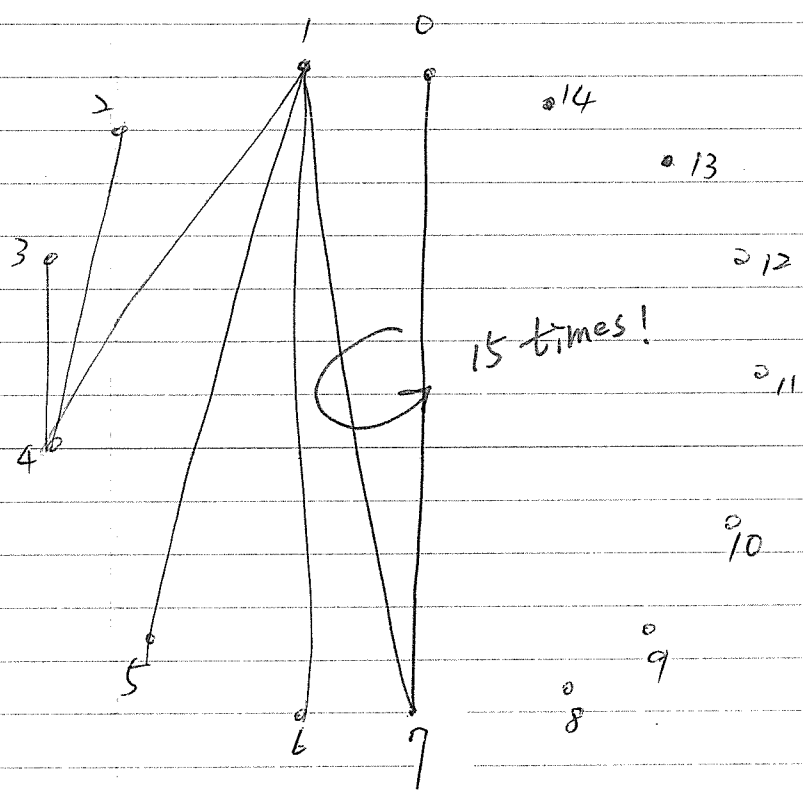 1
0
2
14
13
3
12
15 times!
11
4
10
5
9
6
7
8